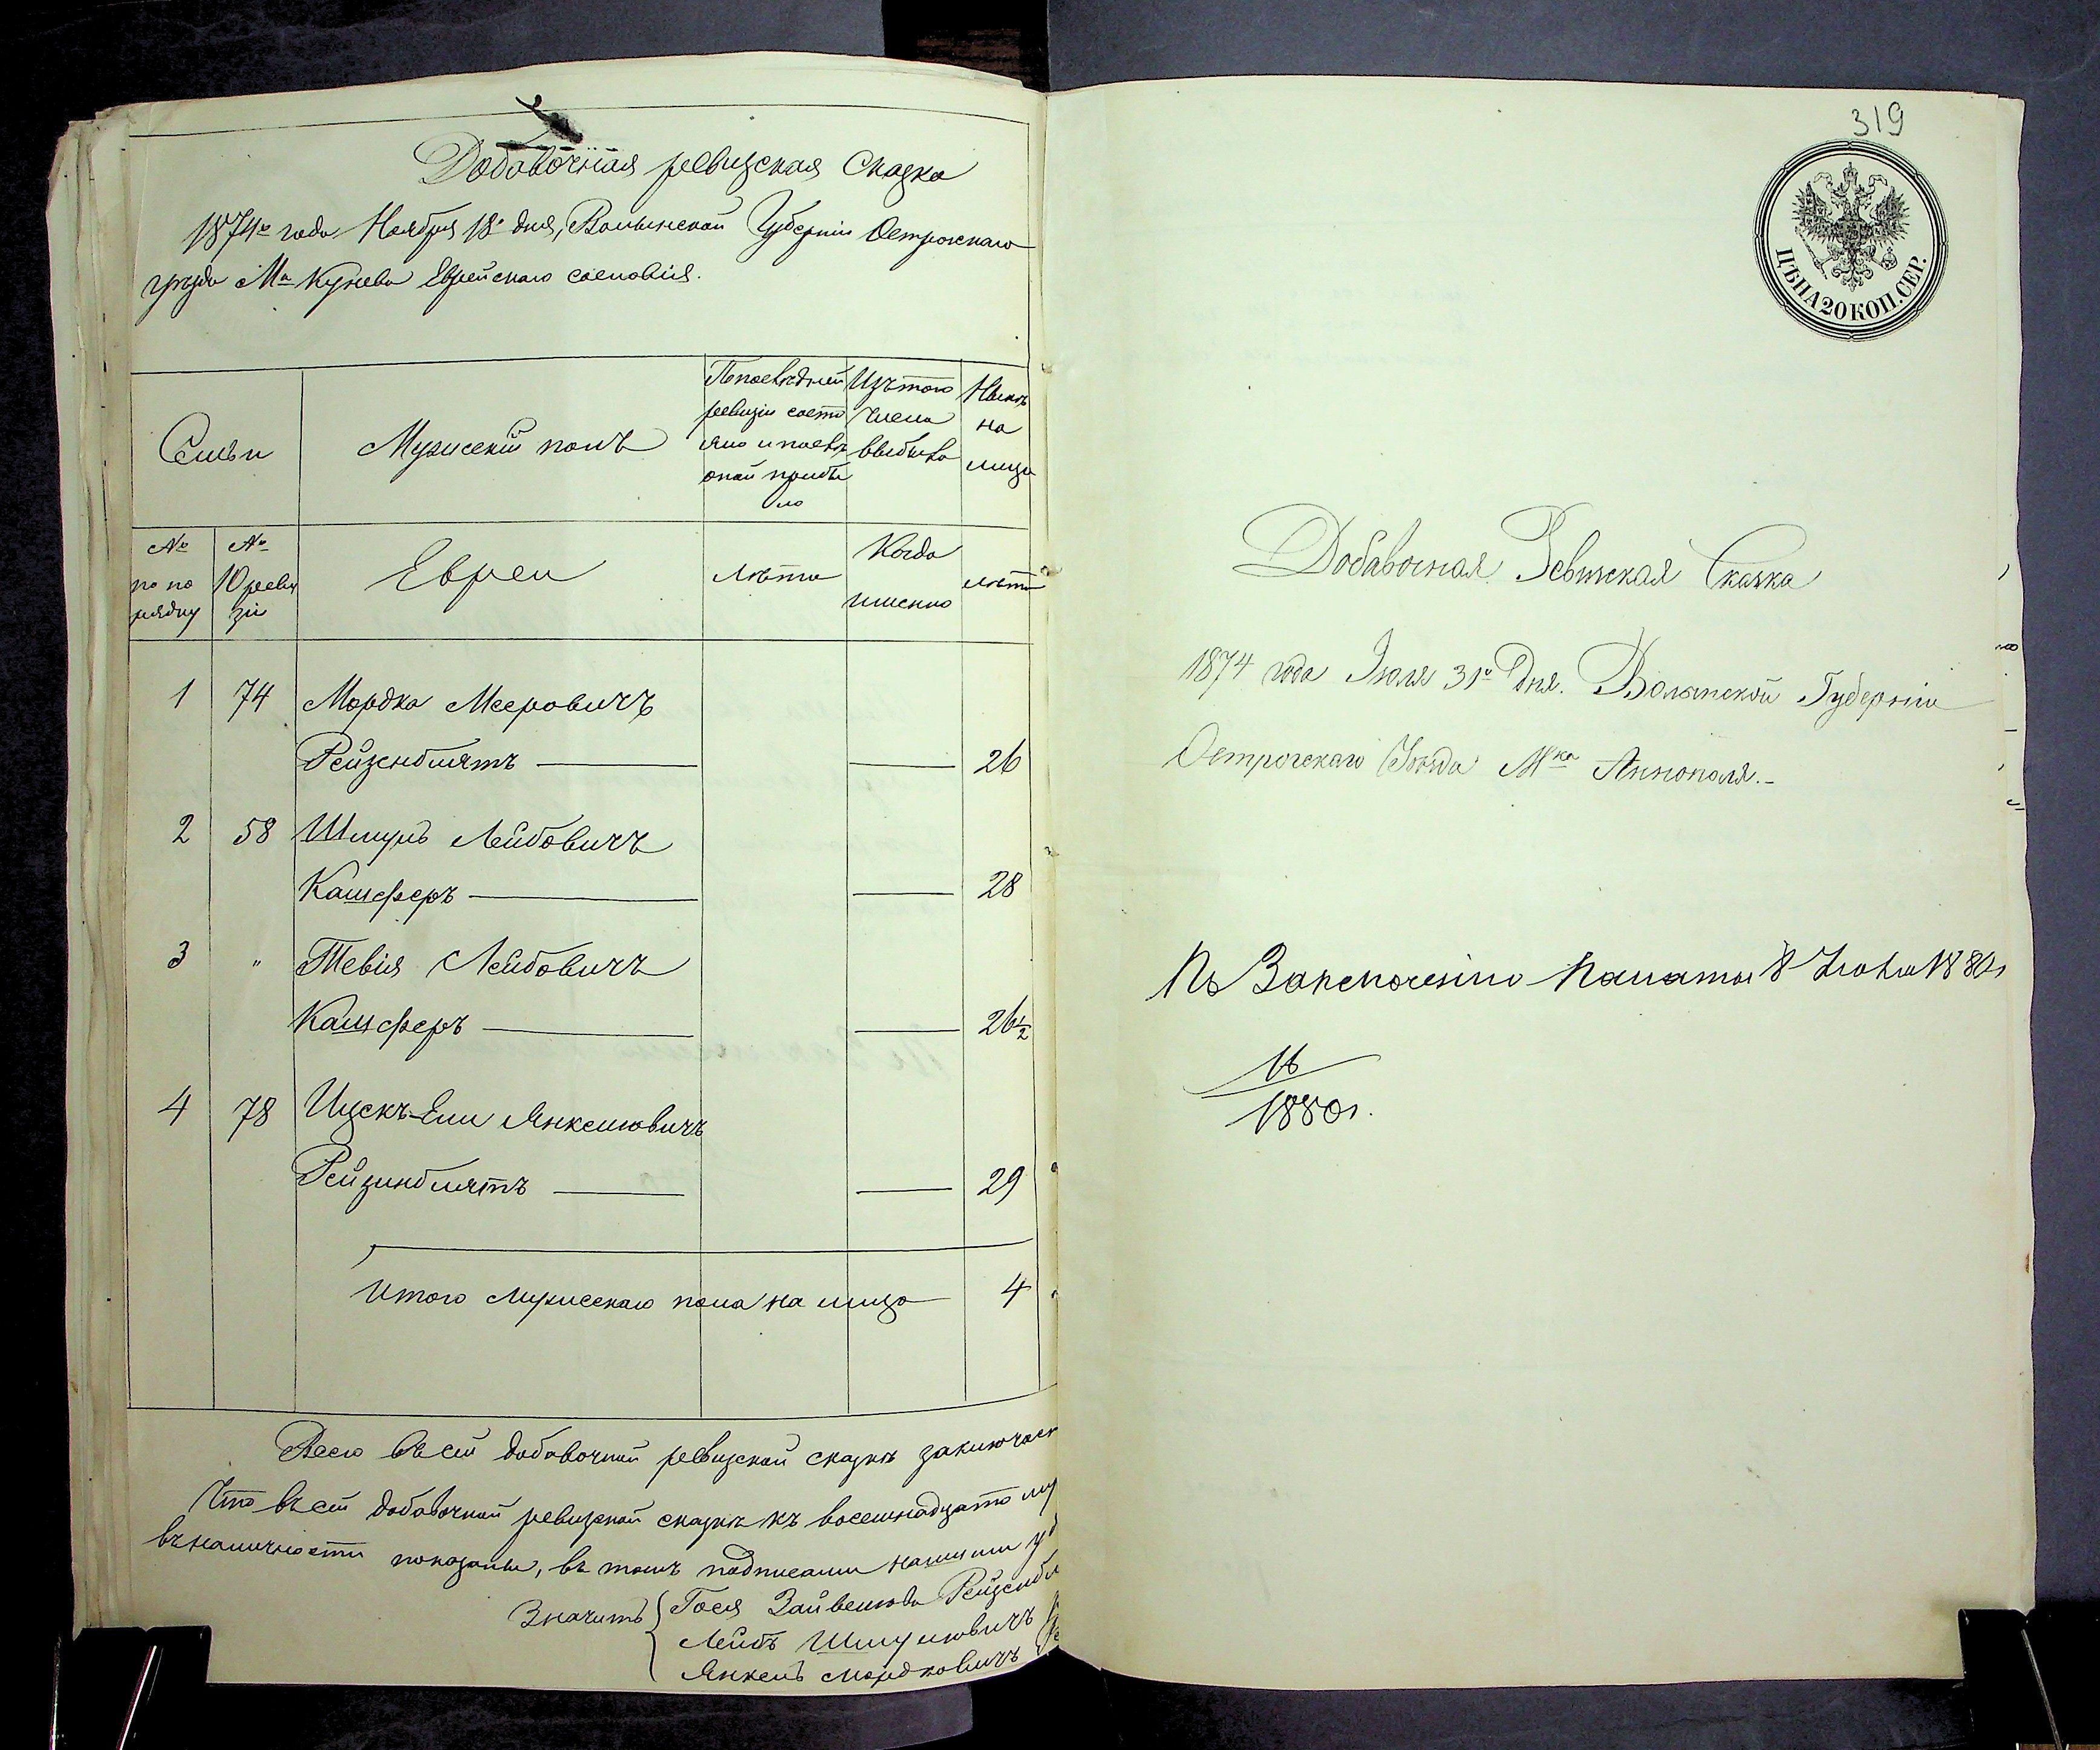 Добавочная ревизская Сказка
1874го года Ноября 18го дня, Волынской Губернии Острожскаго
уезда Мка Кунева Еврейскаго сословія.
Семьи
Мужескій полъ
По последней ревизіи состояло и после оной прибыло
Изъ того числа выбыло
Ныне на лицо
№ по порядку
№ 10 ревизіи
Евреи
Лѣта
Когда именно
лѣта
1 74 Мордко Мееровичъ
Рейзенблятъ — — 26
2 58 Шмуль Лейбовичъ
Кашеферъ — — 28
3 " Тевія Лейбовичъ
Кашеферъ — — 26½
4 78 Ицекъ-Ели Янкелювичъ
Рейзинблятъ — — 29
Итого мужескаго пола на лицо 4
Всего въ сей добавочной ревизской сказкѣ заключает
Что въ сей добавочной ревизской сказкѣ къ восемнадцато
въ наличности показаны, въ томъ подписами нашими уд
Значитъ { Гося Зайвелюва Рейзенбл
Лейбъ Шмулювичъ
Янкель Мордковичъ
319
ЦѢНА 20 КОП. СЕР.
Добавочная Ревизская Сказка
1874 года Іюля 31го Дня. Волынской Губерніи
Острогскаго Уѣзда Мка Аннополя.-
Къ Заключенію Палаты 1880г
16
1880г.